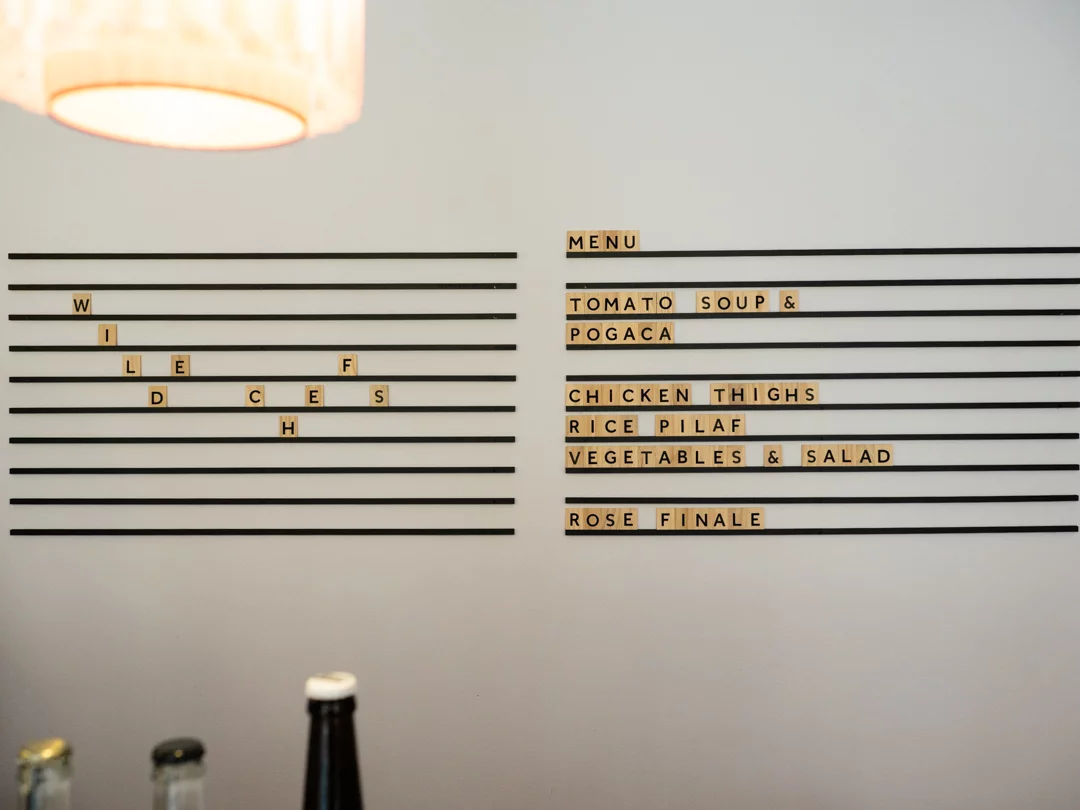 WILDE CHEFS
MENU
TOMATO SOUP &
POGACA
CHICKEN THIGHS
RICE PILAF
VEGETABLES & SALAD
ROSE FINALE